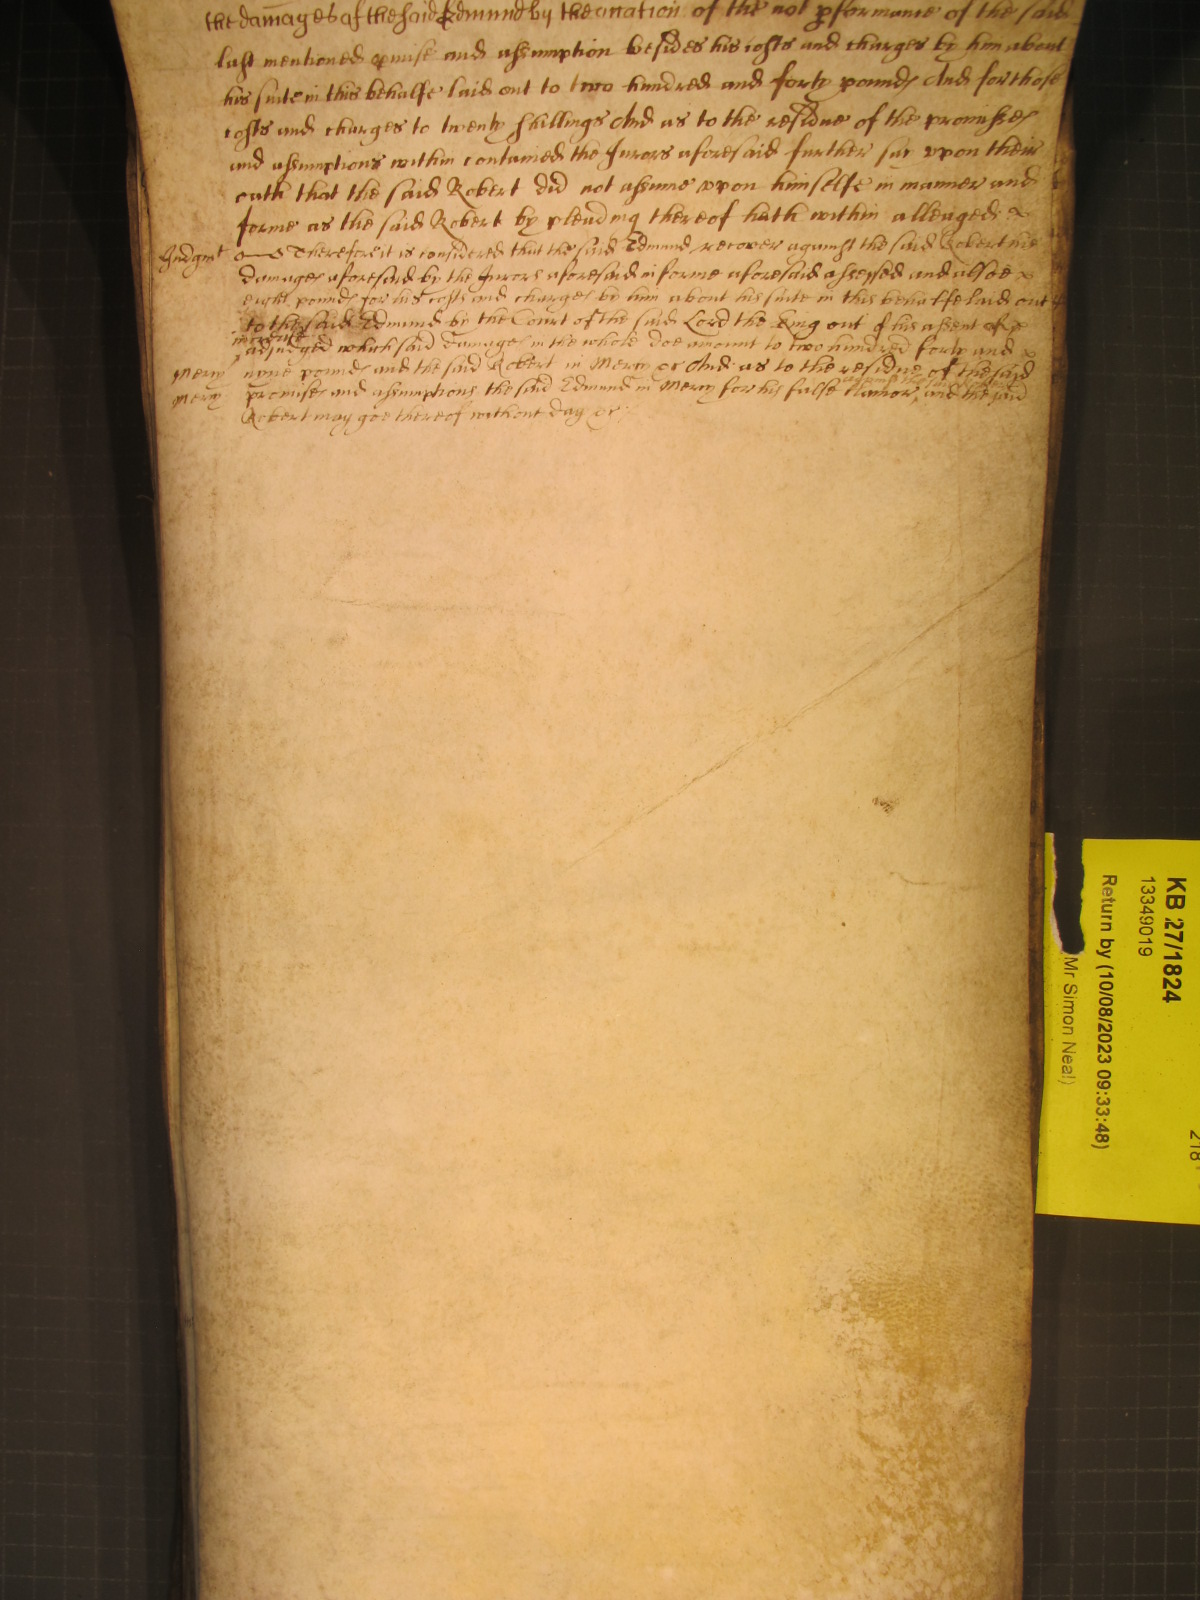 the damages of the said Edmund by the occasion of the not pformance of the said
last mentioned pmise and assumption besides his costs and charges by him about
his suite in this behalfe laid out to two hundred and forty pounds And for those
costs and charges to twenty shillings And as to the residue of the promisses
and assumptions within contained the Jurors aforesaid further say upon their
oath that the said Robert did not assume upon himselfe in manner and
forme as the said Robert by pleading thereof hath within alleaged
Judgmt Therefore it is considered that the said Edmund recover against the said Robert his
damages aforesaid by the Jurors aforesaid in forme aforesaid assessed and alsoe
eight pounds for his costs and charges by him about his suite in this behalfe laid out
to the said Edmund by the Court of the said Lord the King out of his assent of
increase
adjudged which said damages in the whole doe amount to two hundred forty and
Mercy nyne pounds and the said Robert in Mercy &c And as to the residue of the said
Mercy promises and assumptions the said Edmund in Mercy for his false Clamor, and the said
Robert may goe thereof without day &c
KB 27/1824
13349019
Return by (10/08/2023 09:33:48)
Mr Simon Neal)